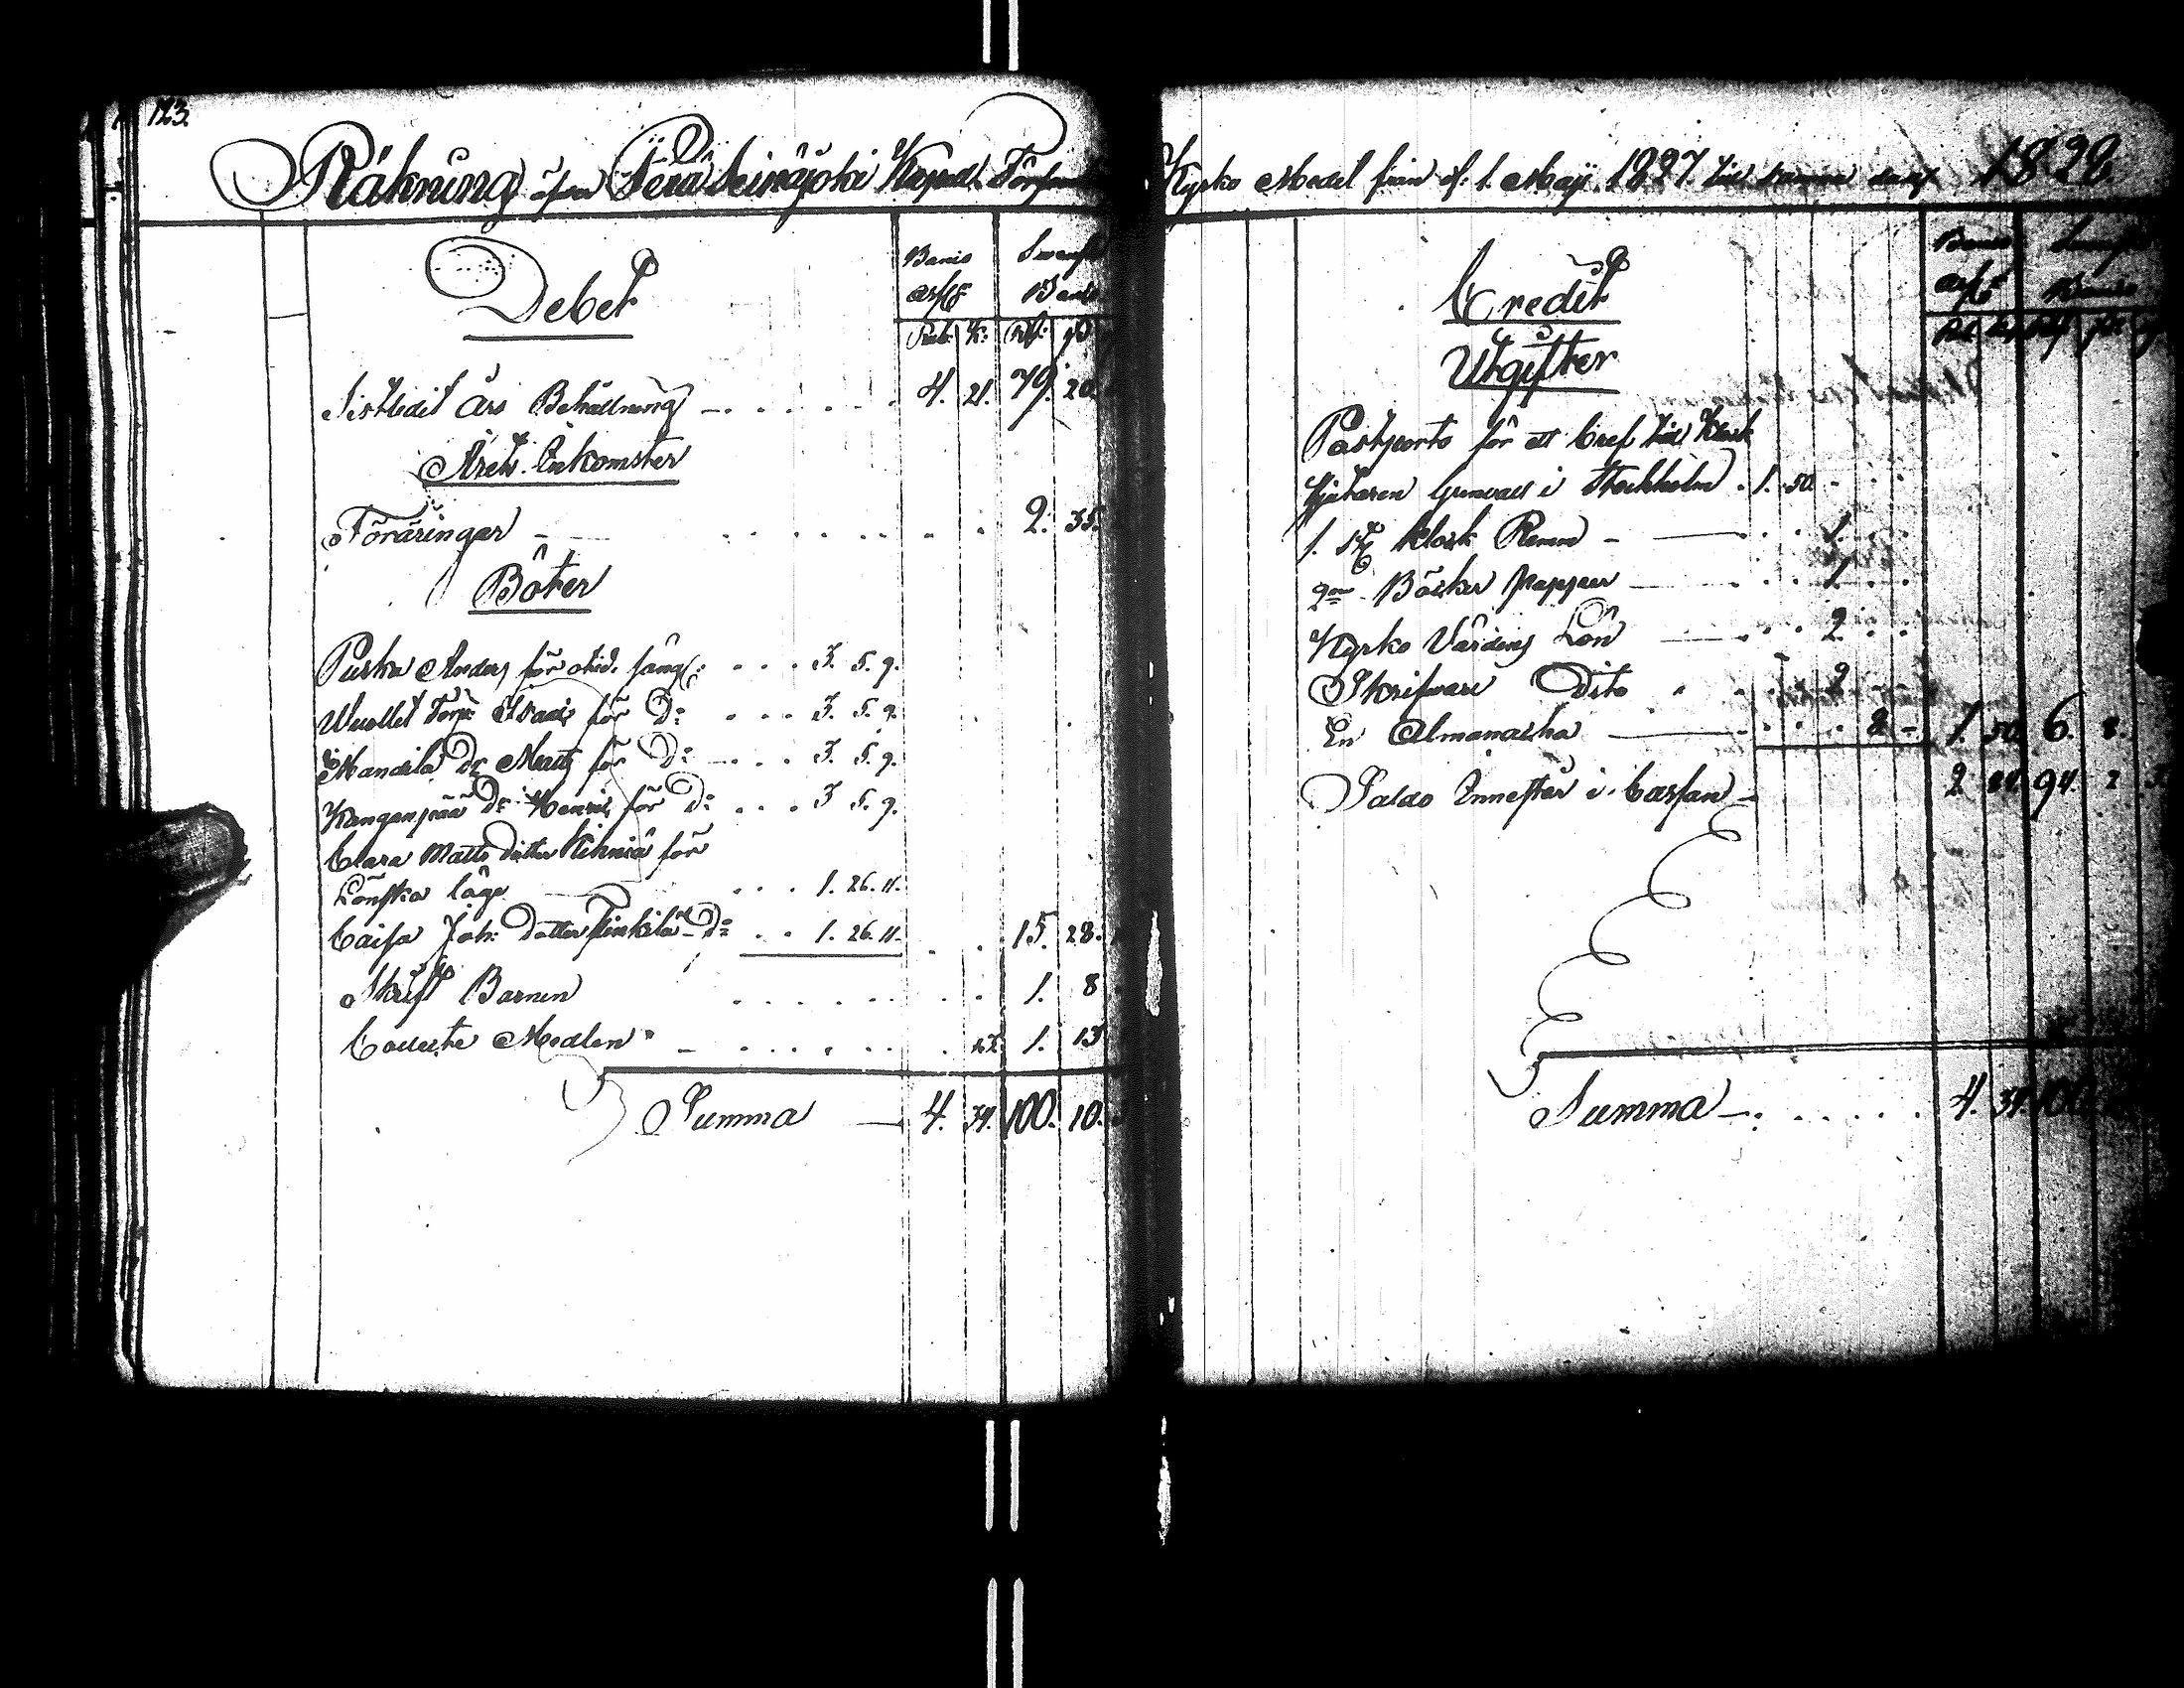 123.
Räkning öfver Perä Seinäjoki Kapell Församl
Debet
Banco Svensk
ass. Banco
Rub: K: Rd: sk
Sistledit års Behållning 4. 21. 79. 20.
Årets Inkomster
Föräringar 2. 35.
Böter
Puska Anders för otid. säng: 3. 5. 9.
Wuollet Torp: Isaac för Do 3. 5. 9.
Mandila Dr Matts för Do 3. 5. 9.
Kanganpää Dr Henric för Do 3 5. 9.
Clara Matts dotter Kihniä för
Lönska läge 1. 26. 11.
Caisa Joh: Dotter Do 1. 26. 11. 15. 28.
Skrift Barnen 1. 8
Collecte Medlen 1. 13
Summa 4. 34. 100. 10.
Kyrko Medel från d: 1. Maji 1827 till samma dag 1828.
Credit
Banco
ass. Banco
Utgifter
Postporto för ett bref till Klock
gjutaren Grenvall i Stockholm 1. 50.
1. st Klock Remm 1.
2ne Böcker Papper 1.
Kyrko Värdens Lön 2.
Skrifvare Dito 2
En Almanacka 8 1. 50 6. 8.
Saldo Innestår i Cassan 2 94. 2
Summa 4. 34. 100.